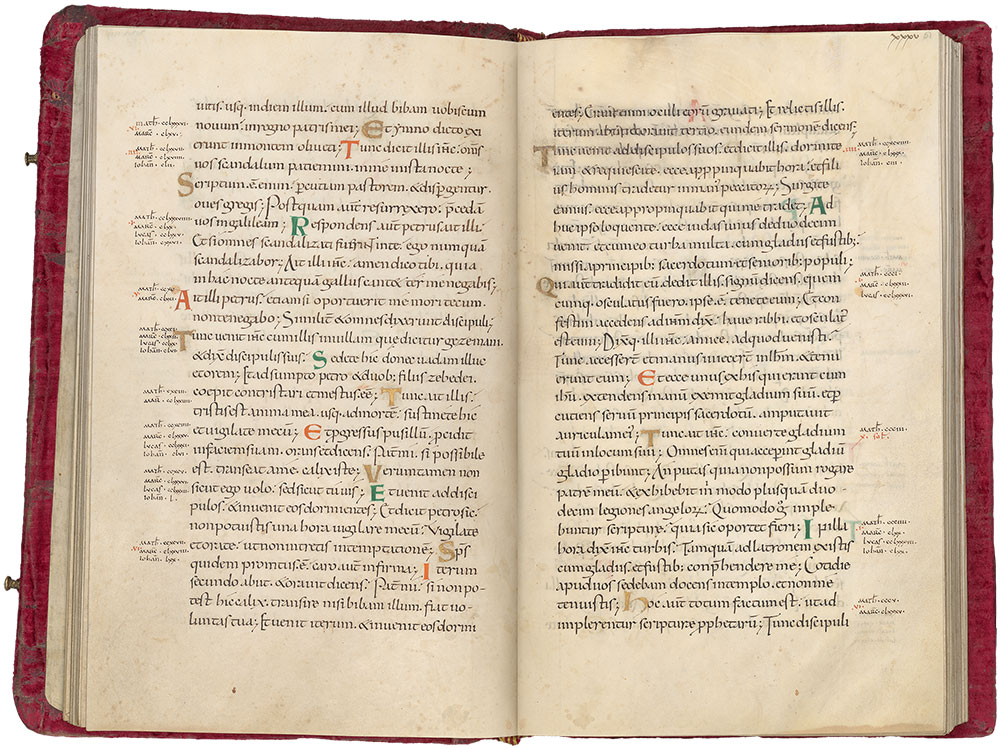 uitis. usq; indiem illum. cum illud bibam uobiscum
nouum. inregno patris mei; Et ymno dicto exi
erunt inmontem oliueti; Tunc dicit illis ihs̄. om̄s
uos scandalum patiemini. inme instanocte;
Scriptum ē. enim. p̄cutiam pastorem. &dispergentur.
oues gregis; Postquam aut̄ resurrexero; p̄cedā
uos ingalileam; Respondens aut̄ petrus. ait illi
Etsiomnes scandalizati fuerint inte. ego numquā
scandalizabor; Ait illi ihs̄. amen dico tibi. quia
in hac nocte antequā gallus cantet ter me negabis;
ait illi petrus. etiamsi oportuerit me mori tecum.
nontenegabo; Similit̄ &omnes dixerunt discipuli;
Tunc uenit ihs̄ cumillis inuillam que dicitur gezemani.
&dix̄ discipulissuis. Sedete hic donec uadam illuc
etorem; Etadsumpto p&ro &duob; filiis zebedei.
coepit concristari etmestus ēē; Tunc ait illis.
tristis est anima mea. usq; admortē. sustinete hic
et uigilate mecū; Etp̄gressus pusillū. p̄cidit
infaciemsuam. orans etdicens. Pat̄ mi. si possibile
est. transeat ame. calix iste; Veruntamen non
sicut ego uolo. sedsicut tu uis; Et uenit addisci
pulos. &inuenit eos dormientes; Etdicit petro. sic
nonpotuistis una hora uigilare mecū; Vigilate
etorate. ut nonintretis intemptatione; Sp̄s
quidem promtus ē. caro. aut̄ infirma; Iterum
secundo abiit. &orauit dicens. Pat̄ mi. si non po
test hic calix. transire nisi bibam illum. fiat uo
luntas tua; Et uenit iterum. &inuenit eos dormi
xxxv
entes; Erant enim oculi eorū grauati; Et relictis illis.
iterum abiit &orauit tertio. eundem sermonē dicens;
Tunc uenit addiscipulossuos. etdicit illis. dormite
iam &requiescite. ecce app̄pinquabit hora. &filius
hominis tradetur inman; peccatorʒ; Surgite
eamus. ecce appropinquabit qui me tradet; Ad
huc ipso loquente. ecce iudas unus deduodecim
uenit. etcumeo turba multa. cum gladiis etfustib;
missi aprincipib; sacerdotum et seniorib; populi;
Qui aut̄ tradidit eū. dedit illis. signū dicens. quem
cumq; osculatus fuero. ipse ē. tenete eum; Et con
festim accedens ad ihm̄ dix̄. haue rabbi. etosculat;
est eū; Dix̄q; illi ihs̄. Amice. adquod uenisti;
Tunc accesser̄t etmanus iniecer̄t inihm̄ &tenu
erunt eum; Et ecce unus exhis qui erant cum
ihū. extendens manū exemit gladium suū. et p
cutiens seruū principis sacerdotū. amputauit
auriculam ei; Tunc ait ihs̄. conuerte gladium
tuū inlocum suū; Omnes enī qui acceper̄t gladiū
gladio peribunt; An putas quia non possum rogare
patrē meū. &exhibebit m̄ modo plus quā duo
decim legiones angelorʒ; Quomodo ḡ imple
buntur scripture. quia sic oportet fieri; In illa
hora dix̄ ihs̄ turbis. Tamquā adlatronem existis
cumgladiis etfustib; conp̄hendere me; Cotidie
apud uos sedebam docens intemplo. etnonme
tenuistis; Hoc. aut̄ totum factum est. ut ad
implerentur scripture p̄phetarū; Tunc discipuli